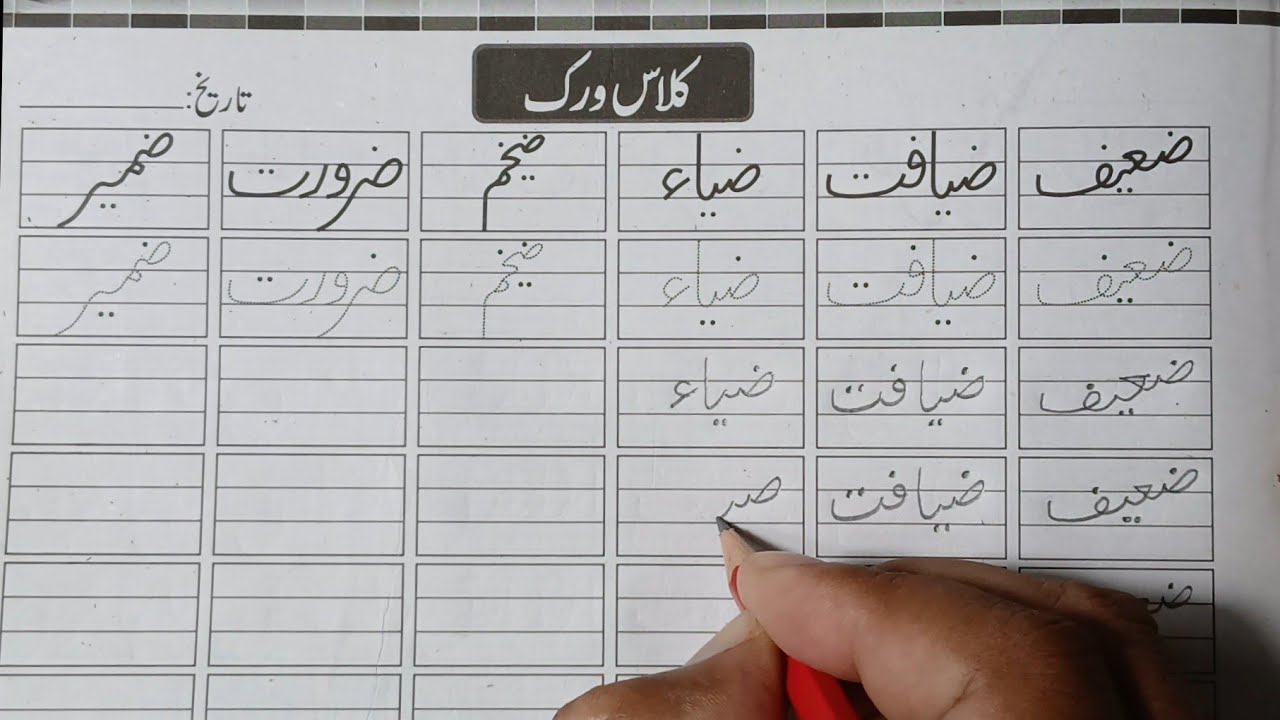 کلاس ورک
تاریخ:
ضعیف ضیافت ضیاء ضخم ضرورت ضمیر
ضعیف ضیافت ضیاء ضخم ضرورت ضمیر
ضعیف ضیافت ضیاء
ضعیف ضیافت صر